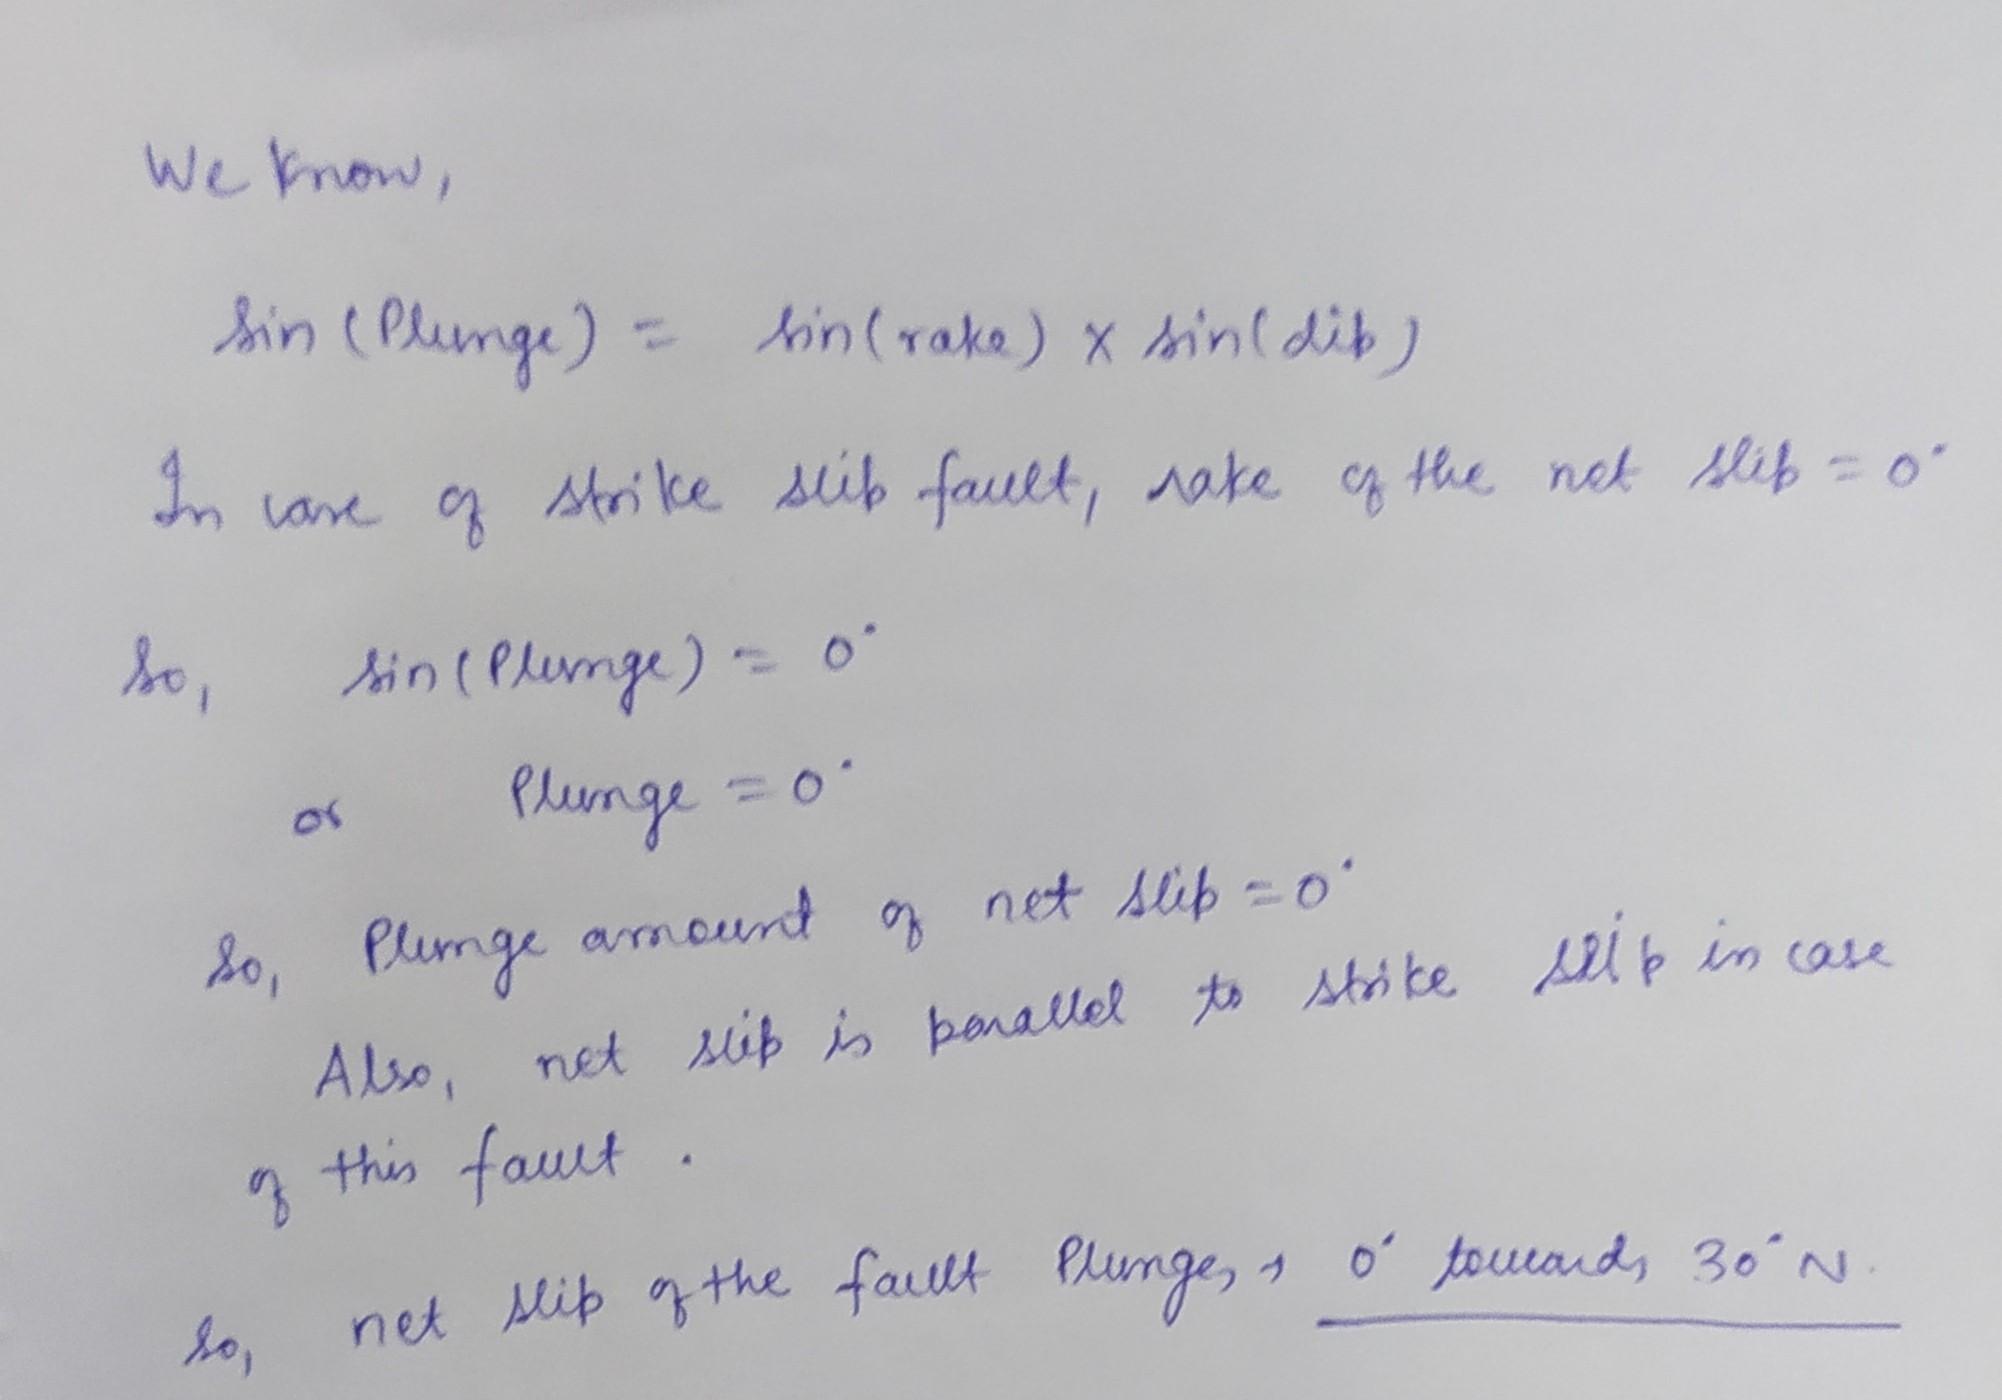 We know,
sin (Plunge) = sin(rake) x sin(dip)
In case of strike slip fault, rake of the net slip = 0°
So, sin (Plunge) = 0°
or Plunge = 0°
So, Plunge amount of net slip = 0°
Also, net slip is parallel to strike slip in case
of this fault .
So, net slip of the fault Plunges, 0° towards 30° N.